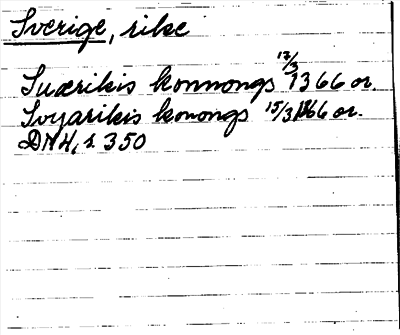 Sverige, rike
Suærikis konnongs 17/3 1366 or.
Svyarikis konongs 15/3 1366 or.
DMH, s. 350